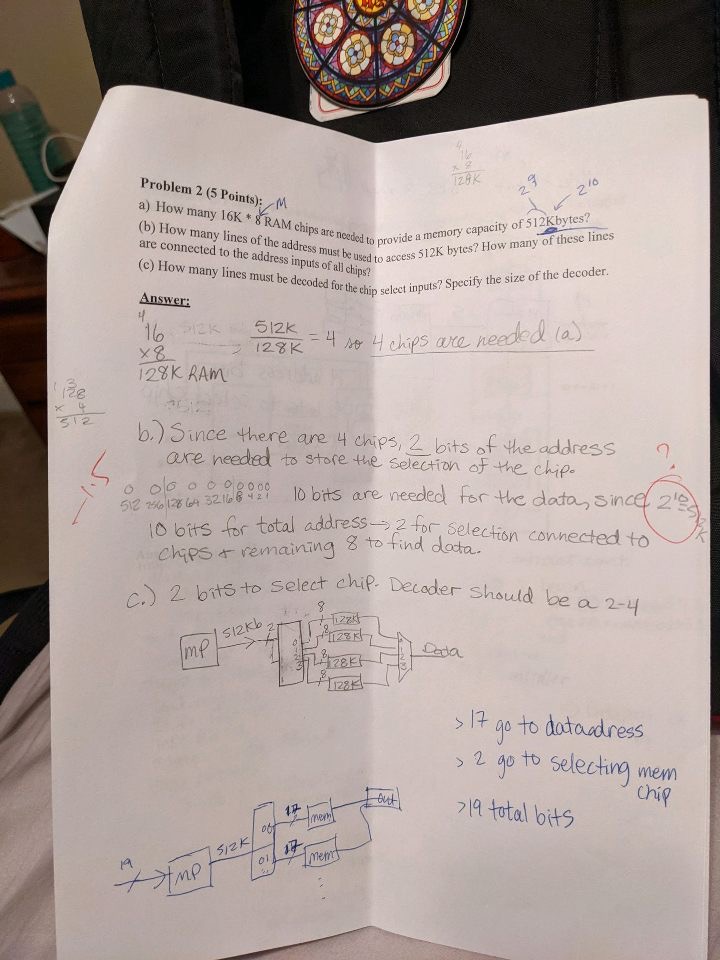 4
16
x 8
128K
2⁹
2¹⁰
Problem 2 (5 Points):
M
a) How many 16K * 8 RAM chips are needed to provide a memory capacity of 512Kbytes?
(b) How many lines of the address must be used to access 512K bytes? How many of these lines
are connected to the address inputs of all chips?
(c) How many lines must be decoded for the chip select inputs? Specify the size of the decoder.
Answer:
4
16
x8
128K RAM
512K
512K / 128K = 4 so 4 chips are needed (a)
3
128
x 4
512
b.) Since there are 4 chips, 2 bits of the address
are needed to store the selection of the chip.
-1.5
?
0 0 0 0 0 0 0 0 0 0
512 256 128 64 32 16 8 4 2 1 10 bits are needed for the data, since 2¹⁰=512K
10 bits for total address → 2 for selection connected to
chips + remaining 8 to find data.
c.) 2 bits to select chip. Decoder should be a 2-4
MP 512Kb 2 0 1 2 3 8 128K 0 1 2 3 Data
8 128K
8 128K
8 128K
> 17 go to dataadress
> 2 go to selecting mem
chip
> 19 total bits
19 MP 512K 00 17 mem out
01 17 mem